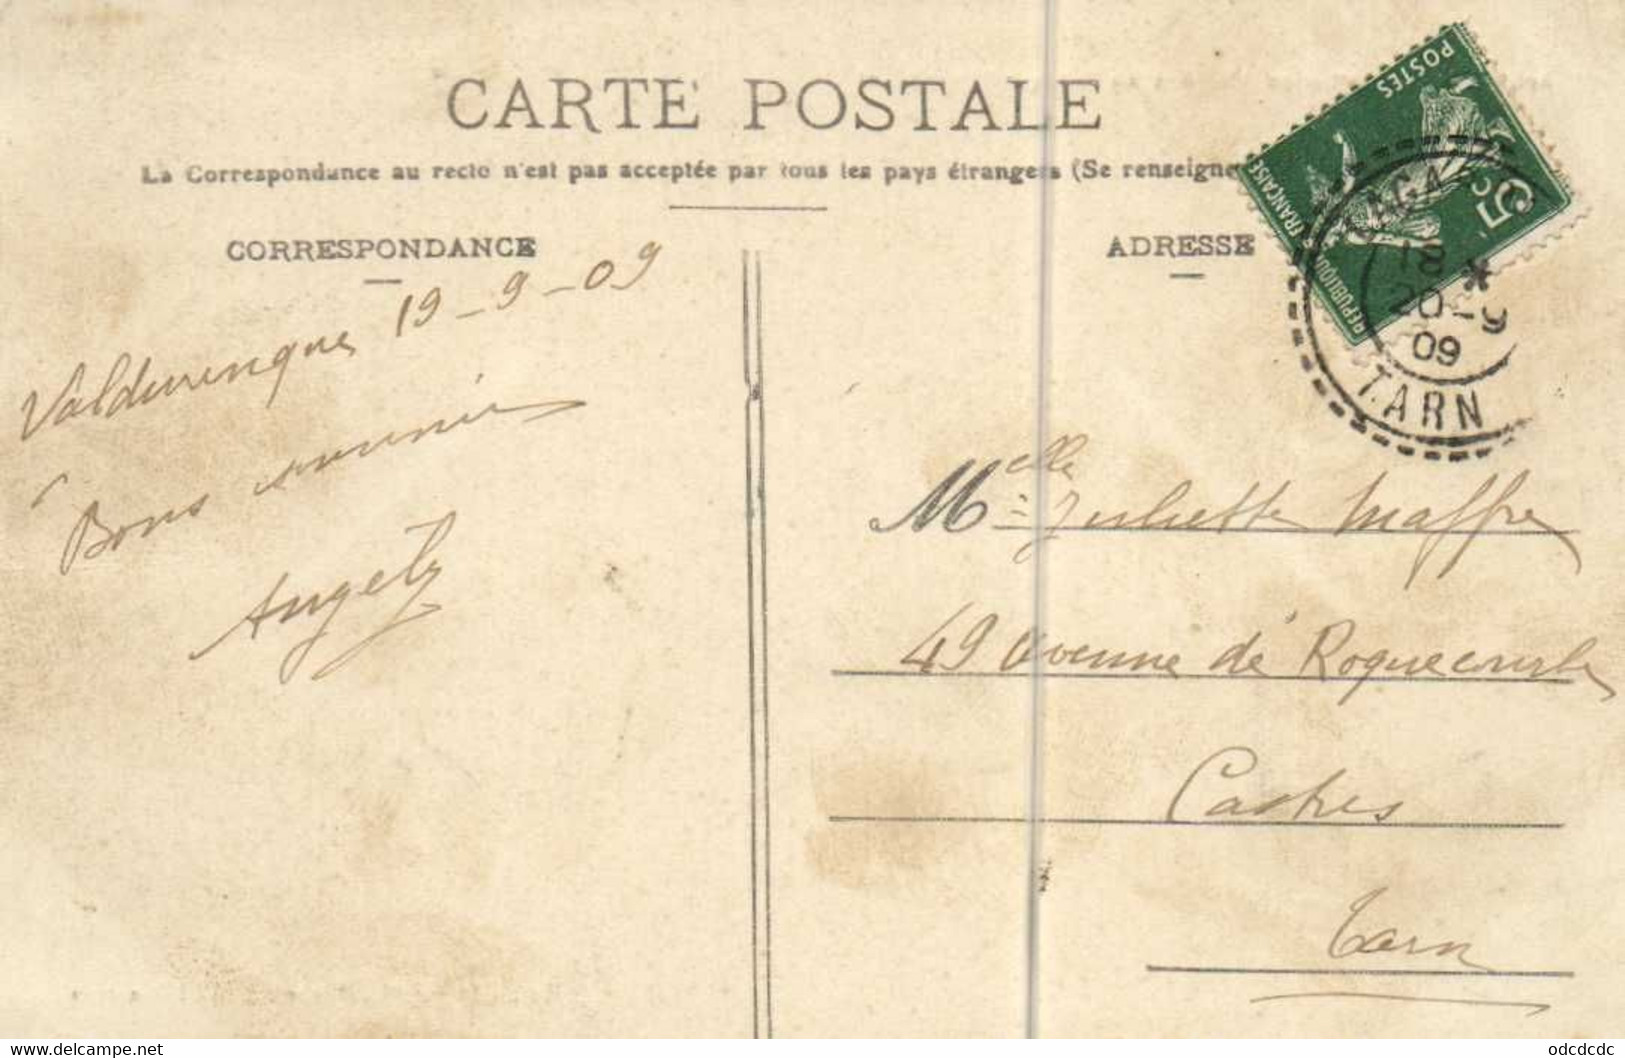 CARTE POSTALE
La Correspondance au recto n'est pas acceptée par tous les pays étrangers (Se renseigne
CORRESPONDANCE
ADRESSE
POSTES
5c
REPUBLIQUE FRANÇAISE
18 *
20-9
09
TARN
Valdurenque 19-9-09
Bons souvenirs
Angely
Melle Juliette Maffre
49 Avenue de Roquecourbe
Castres
Tarn
www.delcampe.net
odcdcdc